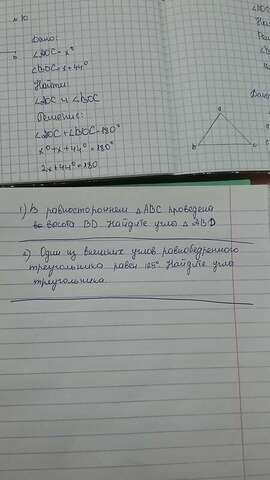 №10
Дано:
∠AOC = x°
∠BOC = x+44°
Найти:
∠AOC и ∠BOC
Решение:
∠AOC + ∠BOC = 180°
x° + x + 44° = 180°
2x + 44° = 180
1) В равностороннем △ABC проведена
во высота BD. Найдите углы △ABD
2) Один из внешних углов равнобедренного
треугольника равен 125°. Найдите углы
треугольника.